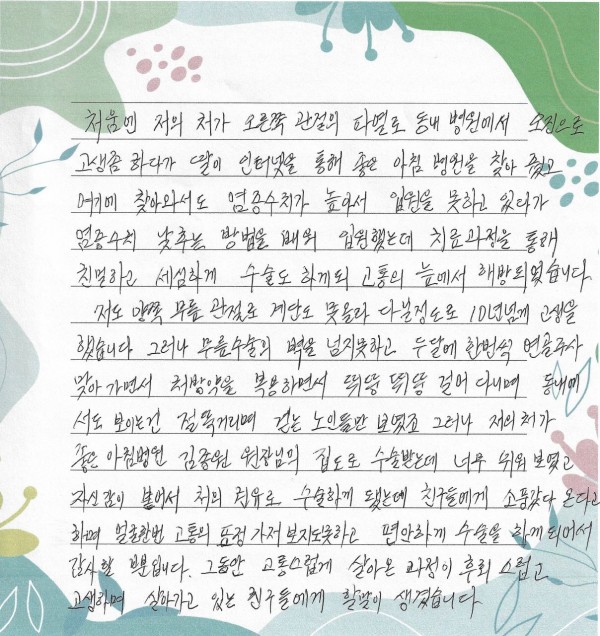 처음엔 저의 처가 오른쪽 관절의 파열로 동네 병원에서 오진으로
고생좀 하다가 딸이 인터넷을 통해 좋은 아침 병원을 찾아 줬고
여기에 찾아와서도 염증수치가 높아서 입원을 못하고 있다가
염증수치 낮추는 방법을 배워 입원했는데 치료과정을 통해
친명하고 세심하게 수술도 하게되 고통의 늪에서 해방되었습니다.
저도 양쪽 무릎 관절로 계단도 못올라 다닐정도로 10년넘게 고생을
했습니다 그러나 무릎수술의 벽을 넘지못하고 두달에 한번씩 연골주사
맞아 가면서 처방약을 복용하면서 뛰뚱 뛰뚱 걸어 다니며 동네에
서도 보이는건 절뚝거리며 걷는 노인들만 보였죠 그러나 저의처가
좋은 아침병원 김종원 원장님의 집도로 수술받는데 너무 쉬워 보였고
자신감이 붙어서 처의 권유로 수술하게 됐는데 친구들에게 소풍갔다 온다고
하며 얼굴한번 고통의 표정 가져 보지도못하고 편안하게 수술을 하게되어서
감사할 뿐입니다. 그동안 고통스럽게 살아온 과정이 후회 스럽고
고생하며 살아가고 있는 친구들에게 할말이 생겼습니다.